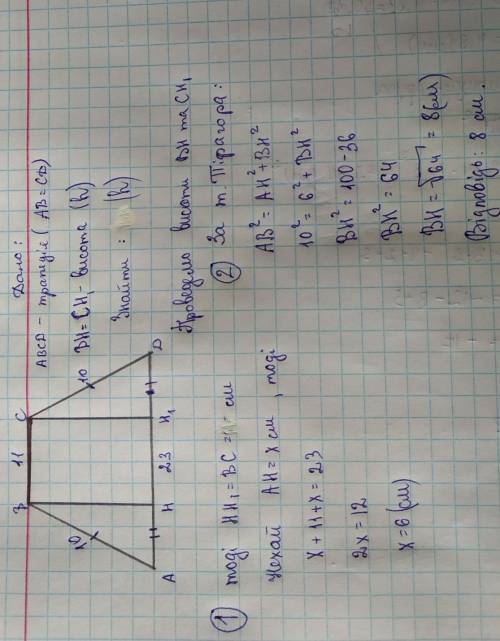 Дано:
ABCD - трапеція (AB=CD)
BH=CH₁ - висота (h)
Знайти: (h)
B 11 C
10 10
A H 23 H₁ D
Проведемо висоти BH та CH₁
① тоді HH₁=BC= см
Нехай AH=x см, тоді
x+11+x=23
2x=12
x=6(см)
② За т. Піфагора:
AB²=AH²+BH²
10²=6²+BH²
BH²=100-36
BH²=64
BH=√64=8(см)
Відповідь: 8 см.